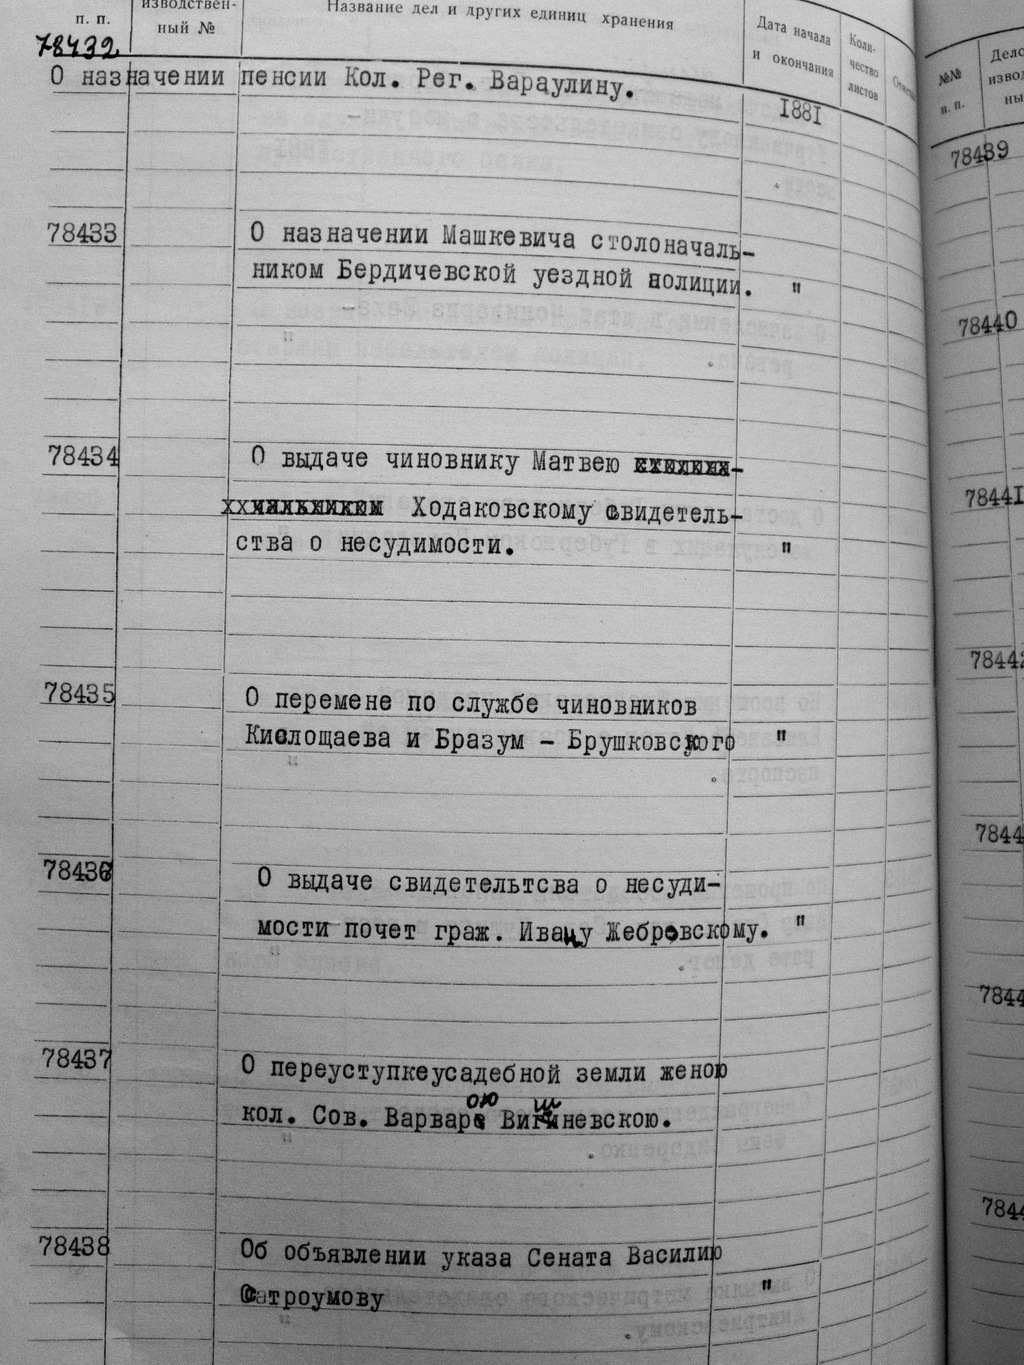 п. п.
изводствен-
ный №
Название дел и других единиц хранения
Дата начала
и окончания
Коли-
чество
листов
78432
О назначении пенсии Кол. Рег. Вараулину.
1881
78433
О назначении Машкевича столоначаль-
ником Бердичевской уездной полиции. "
78434
О выдаче чиновнику Матвею
Ходаковскому свидетель-
ства о несудимости. "
78435
О перемене по службе чиновников
Кислощаева и Бразум - Брушковского "
78436
О выдаче свидетельтсва о несуди-
мости почет граж. Ивану Жебровскому. "
78437
О переуступкеусадебной земли женою
кол. Сов. Варварою Вишневскою.
78438
Об объявлении указа Сената Василию
Остроумову "
№№
п. п.
Дело
извод
ны
78439
78440
78441
78442
7844
7844
7844